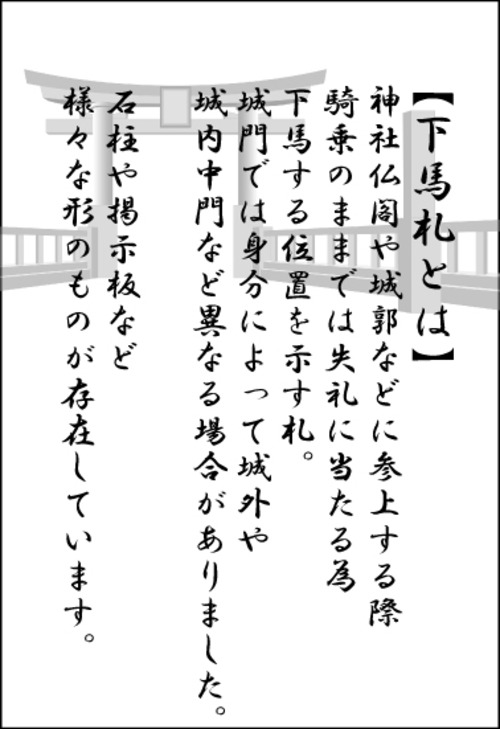 【下馬札とは】
神社仏閣や城郭などに参上する際
騎乗のままでは失礼に当たる為
下馬する位置を示す札。
城門では身分によって城外や
城内中門など異なる場合がありました。
石柱や掲示板など
様々な形のものが存在しています。